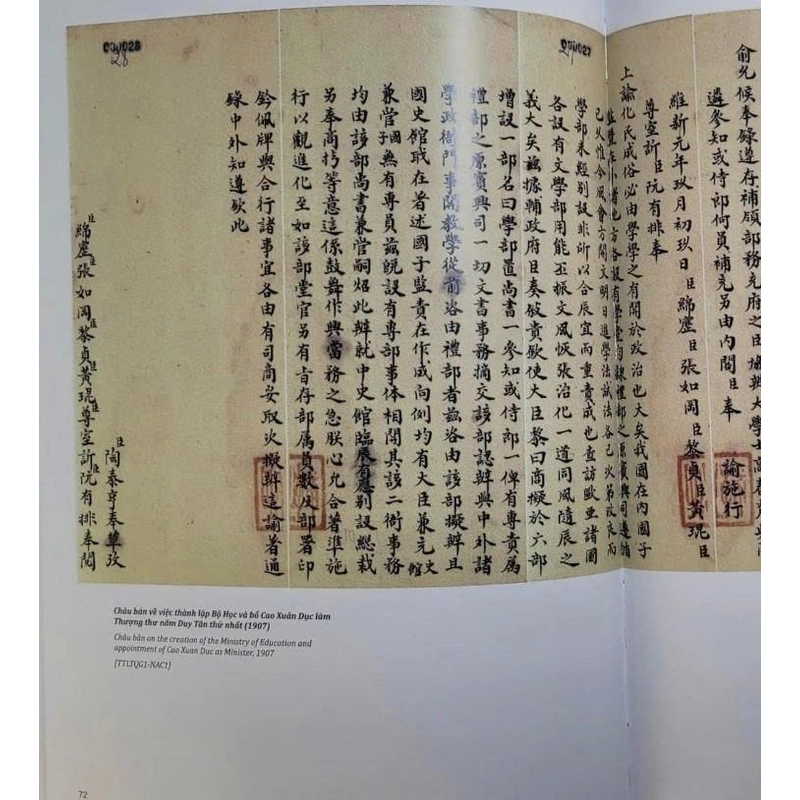 俞允候奉錄遵存補領部務充府之臣協辦大學士高春育
遴參知或侍郎何員補充另由內閣臣奉 諭施行
維新元年玖月初玖日臣綿臣張如岡臣黎貞臣黃琨臣
尊室訢臣阮有排奉
上諭化民成俗必由學學之有關於政治也大矣我國在內國子
監在小省也方各設有學堂均隸禮部之原賓興司遵循
已久惟今風會方開文明日進學法試法各已次第改良而
學部未經別設非所以合辰宜而重責成也查訪歐亞諸國
各設有文學部用能丕振文風恢張治化一道同風隨辰之
義大矣茲據輔政府臣奏貴欽使大臣黎曰商擬於六部
增設一部名曰學部置尚書一參知或侍郎一俾有專責属
禮部之原賓興司一切文書事務摘交該部認辦與中外諸
學政衙門事關教學從前咨由禮部者茲咨由該部擬辦且
國史館職在著述國子監責在作成向例均有大臣兼充史館
兼管國子無有專員茲旣設有專部事体相関其該二衙事務
均由該部尚書兼管嗣炤此辦就中史館臨辰有應別設総裁
另奉商等意這係鼓舞作興當務之急朕心允合著準施
行以觀進化至如該部堂官另有旨存部属員數及部署印
鈐佩牌與合行諸事宜各由有司商妥取次擬辦這諭著通
錄中外知遵欽此
臣陶泰亨奉草攷
臣綿臣張如岡臣黎貞臣黃琨臣尊室訢臣阮有排奉閱
000027
27
000028
28
Châu bản về việc thành lập Bộ Học và bổ Cao Xuân Dục làm
Thượng thư năm Duy Tân thứ nhất (1907)
Châu bản on the creation of the Ministry of Education and
appointment of Cao Xuan Duc as Minister, 1907
[TTLTQG1-NAC1]
72